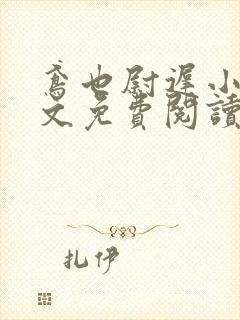 鸢也尉遲小
文免費閱讀
扎伊